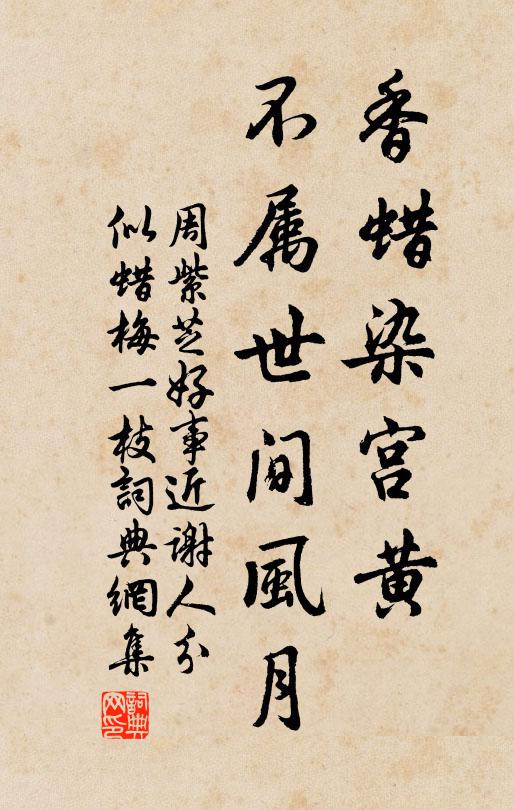 香蜡染宫黄
不属世间風月
周紫芝好事近謝人分
似蜡梅一枝詞典網集
詞典網印